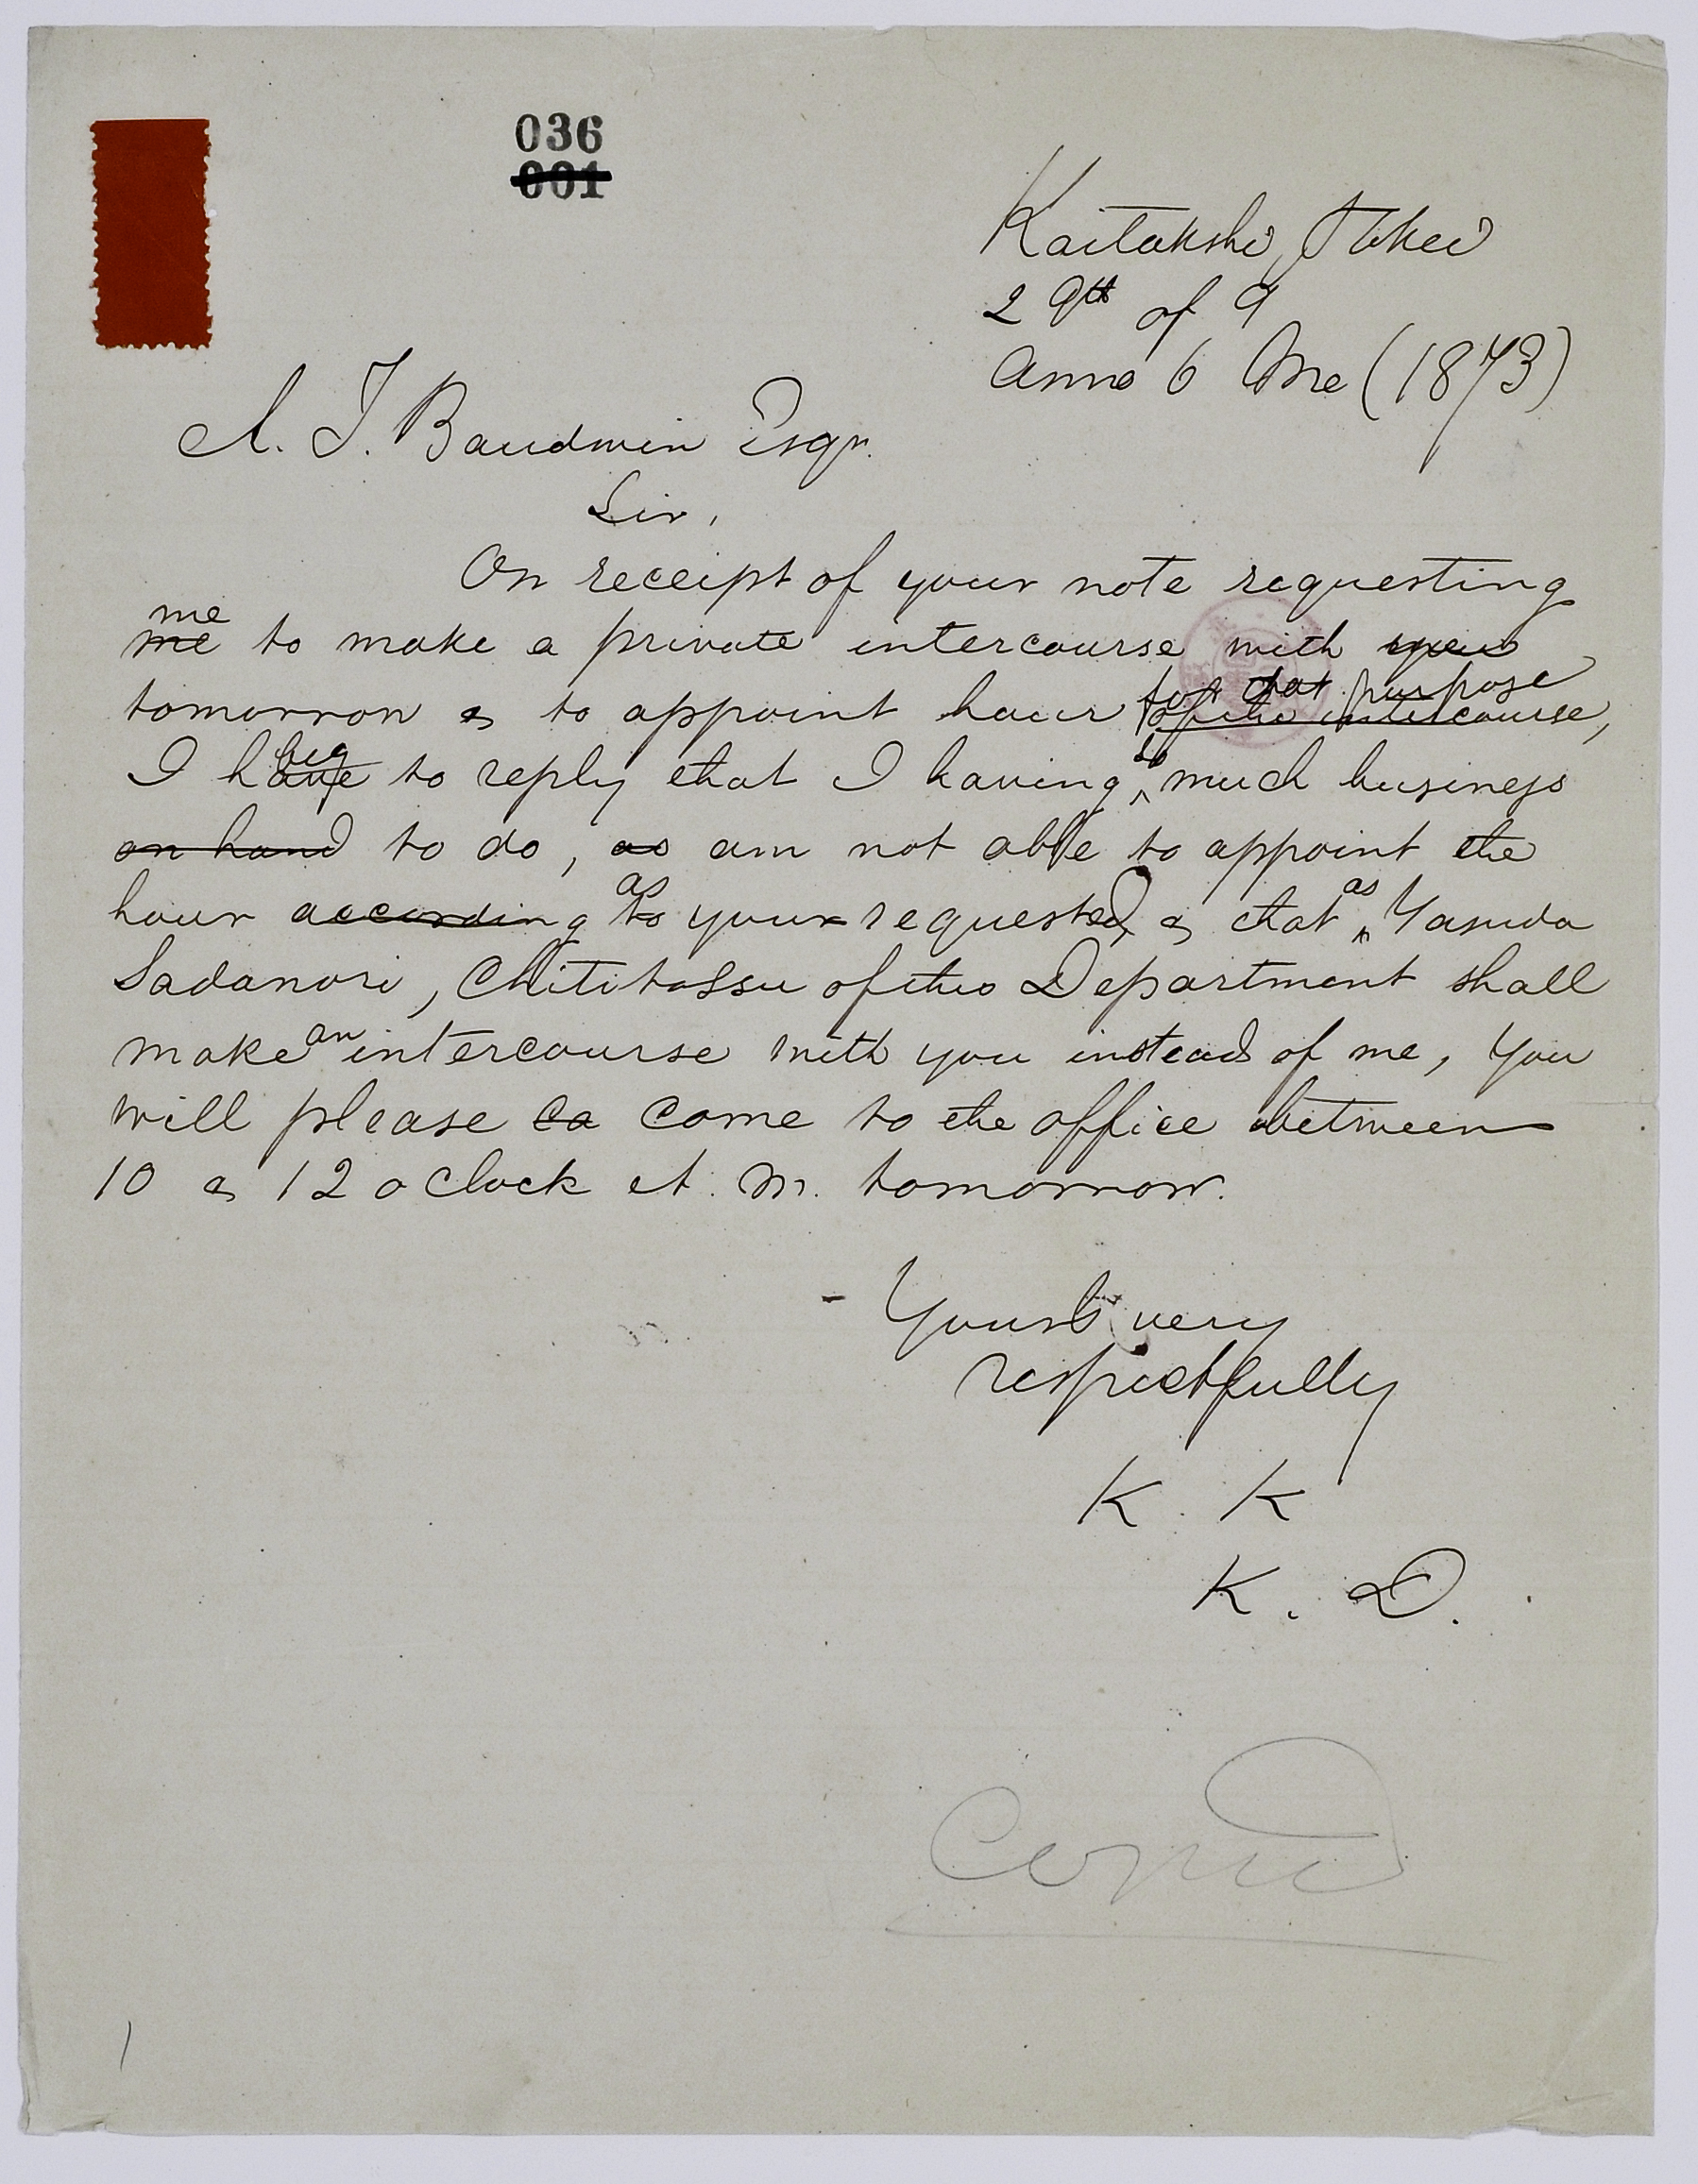 036
001
Kaitakshi, Tokei
29th of 9
Anno 6 Me (1873)
A. J. Baudwin Esqr.
Sir,
On receipt of your note requesting
me
me to make a private intercourse with you
for that purpose
tomorrow & to appoint hour of the intercourse,
beg so
I have to reply that I having ^ much business
on hand to do, as am not able to appoint the
as as
hour according to your requested, & that ^ Yasuda
Sadanori, Chititossu of this Department shall
an
make intercourse with you instead of me, You
will please co come to the office between
10 & 12 o Clock A. M. tomorrow.
Yours very
respectfully
K. K
K. D.
Copied